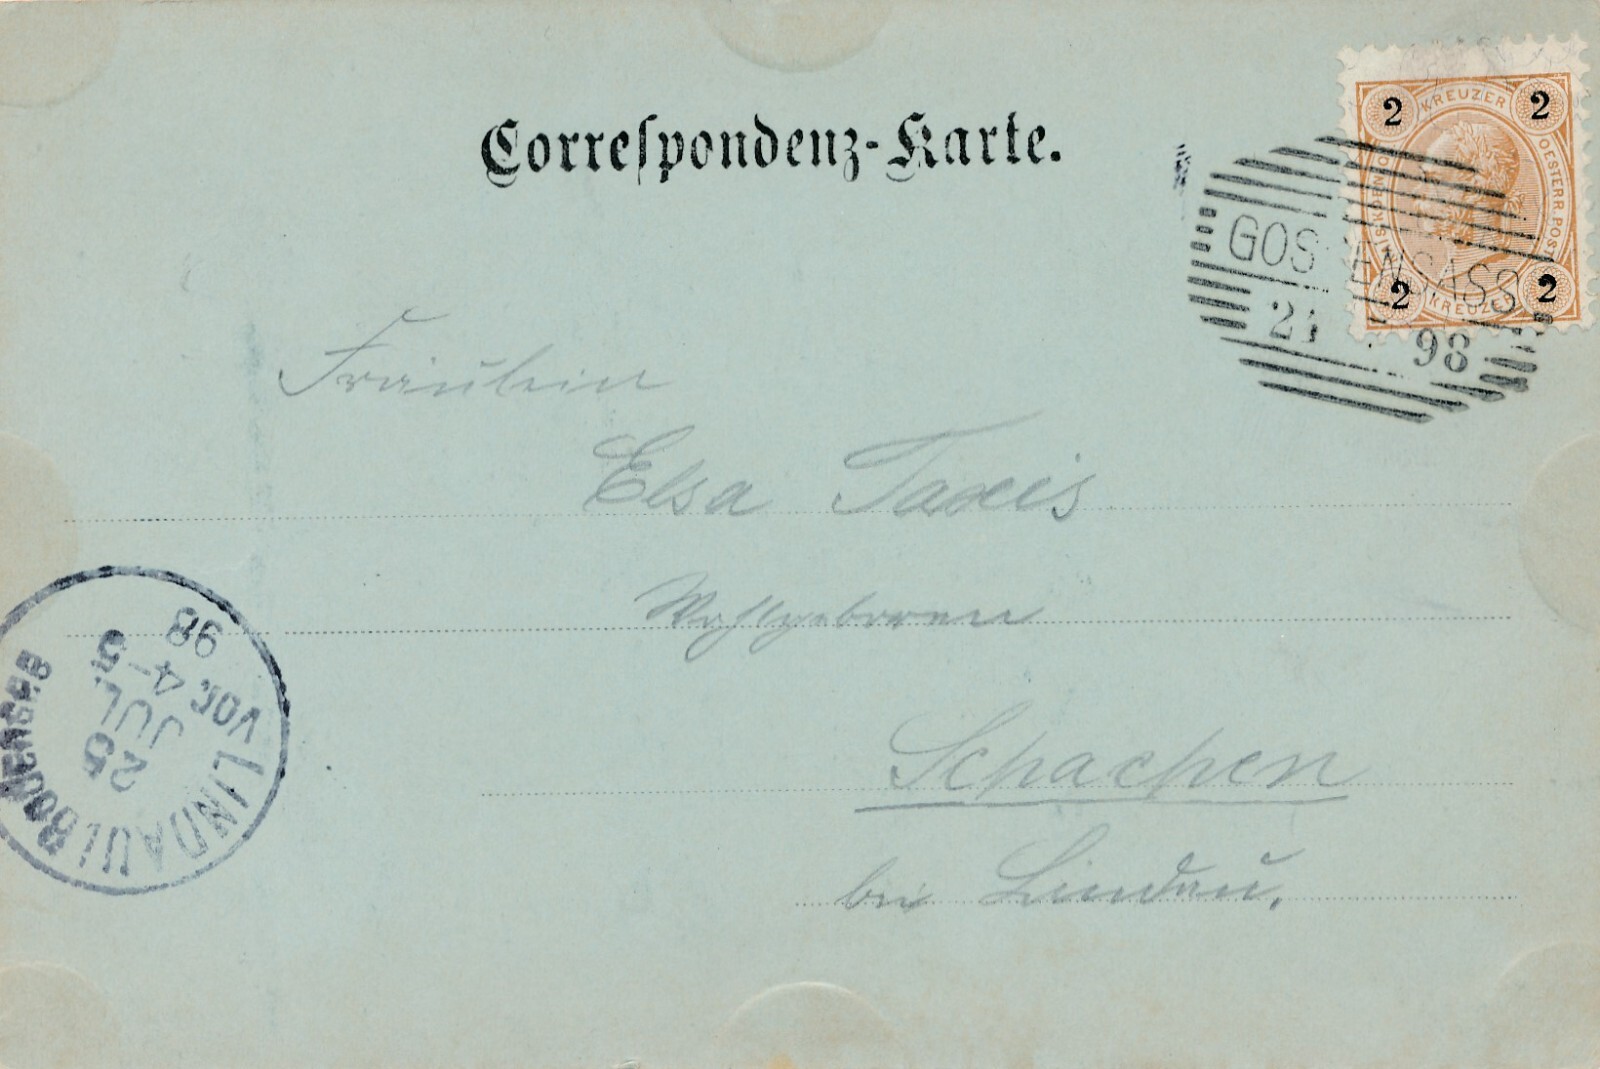 Correspondenz-Karte.
2 KREUZER 2
OESTERR. POST
2 KREUZER 2
GOSSENSASS
98
Fräulein
Elsa Taxis
Wohlgeboren
Schachen
bei Lindau.
LINDAU I. BODENSEE
25
JUL.
VOR. 4-5
98